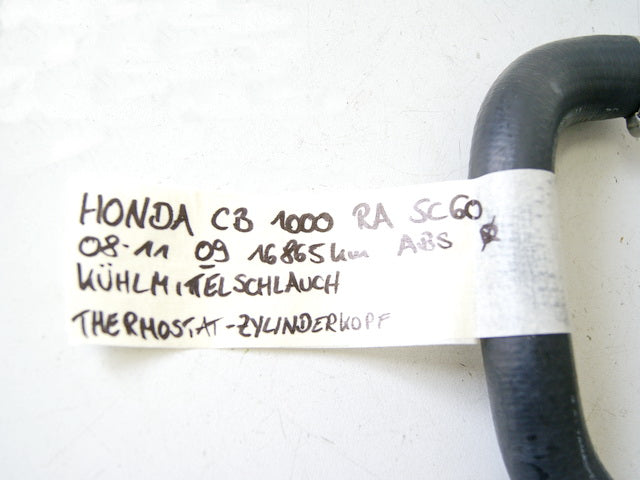 HONDA CB 1000 RA SC60
08-11 09 16865km ABS
KÜHLMITTELSCHLAUCH
THERMOSTAT-ZYLINDERKOPF